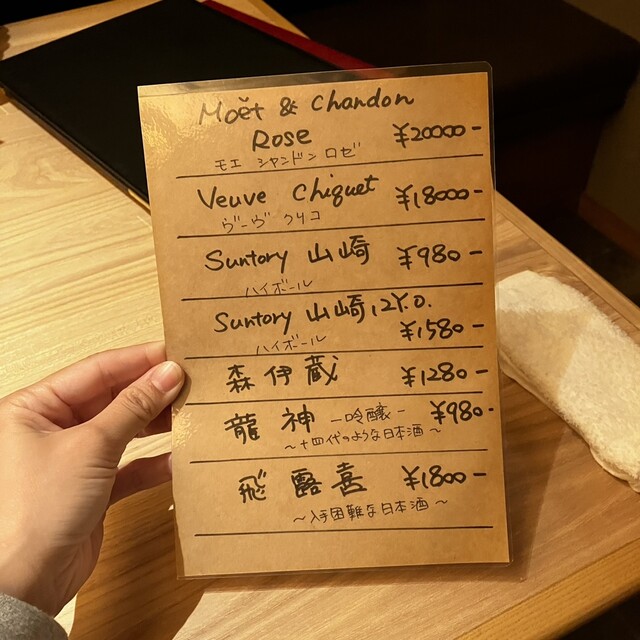 Moët & Chandon
Rose ¥20000-
モエ シャンドン ロゼ
Veuve Chiquet ¥18000-
ヴーヴ クリコ
Suntory 山崎 ¥980-
ハイボール
Suntory 山崎 12Y.O.
¥1580-
ハイボール
森伊蔵 ¥1280-
龍神 -吟醸- ¥980-
~十四代のような日本酒~
飛露喜 ¥1800-
~入手困難な日本酒~